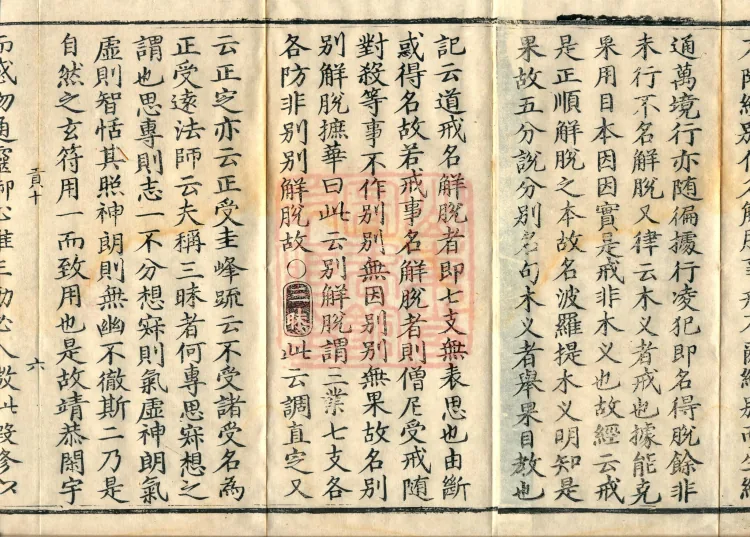 通萬境行亦随徧據行凌犯即名得脱餘非
未行不名解脱又律云木义者戒也據能克
果用日本因因實是戒非木义也故經云戒
是正順解脱之本故名波羅提木义明知是
果故五分説分别名句木义者舉果目教也
記云道戒名解脱者即七支無表思也由斷
惑得名故若戒事名解脱者則僧尼受戒随
對殺等事不作别别無因别别無果故名别
别解脱摭華曰此云别解脱謂三業七支各
各防非别别解脱故〇三昧此云調直定又
云正定亦云正受圭峰䟽云不受諸受名為
正受遠法師云夫稱三昧者何專思寂想之
謂也思專則志一不分想寂則氣虚神朗氣
虚則智恬其照神朗則無幽不徹斯二乃是
自然之玄符用一而致用也是故靖恭閑宇
頁十
六
而感物通靈御心惟正動必入微此段修以